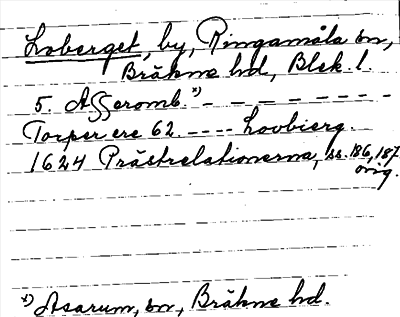 Loberget, by, Ringamåla sn,
Bräkne hd, Blek. l.
5. Asseromb. x) - - - - - - - -
Torper ere 62. - - - - Lovbierg.
1624 Prästrelationerna, ss. 186, 187
orig.
x) Asarum, sn, Bräkne hd.